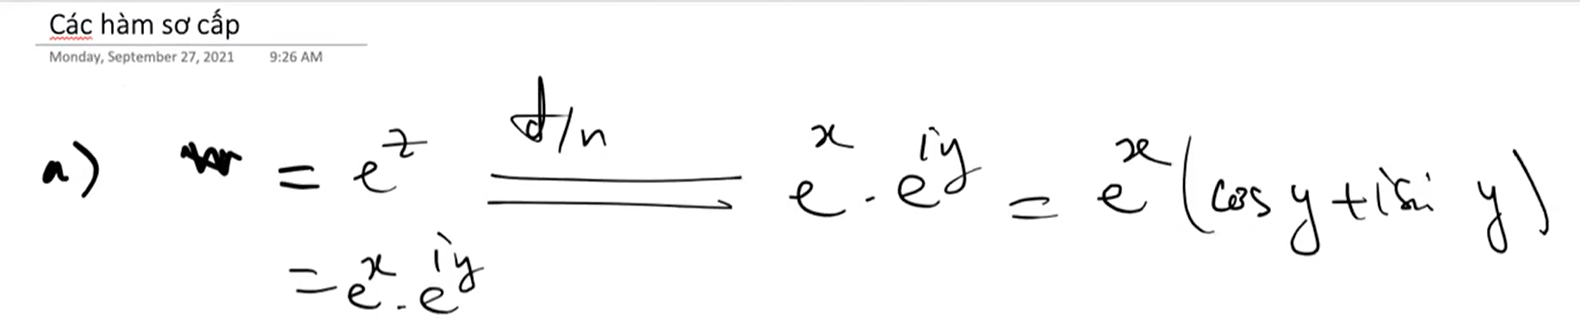 Các hàm sơ cấp
Monday, September 27, 2021 9:26 AM
a) w = e^z =(đ/n) e^x . e^{iy} = e^x (cos y + i sin y)
= e^x . e^{iy}